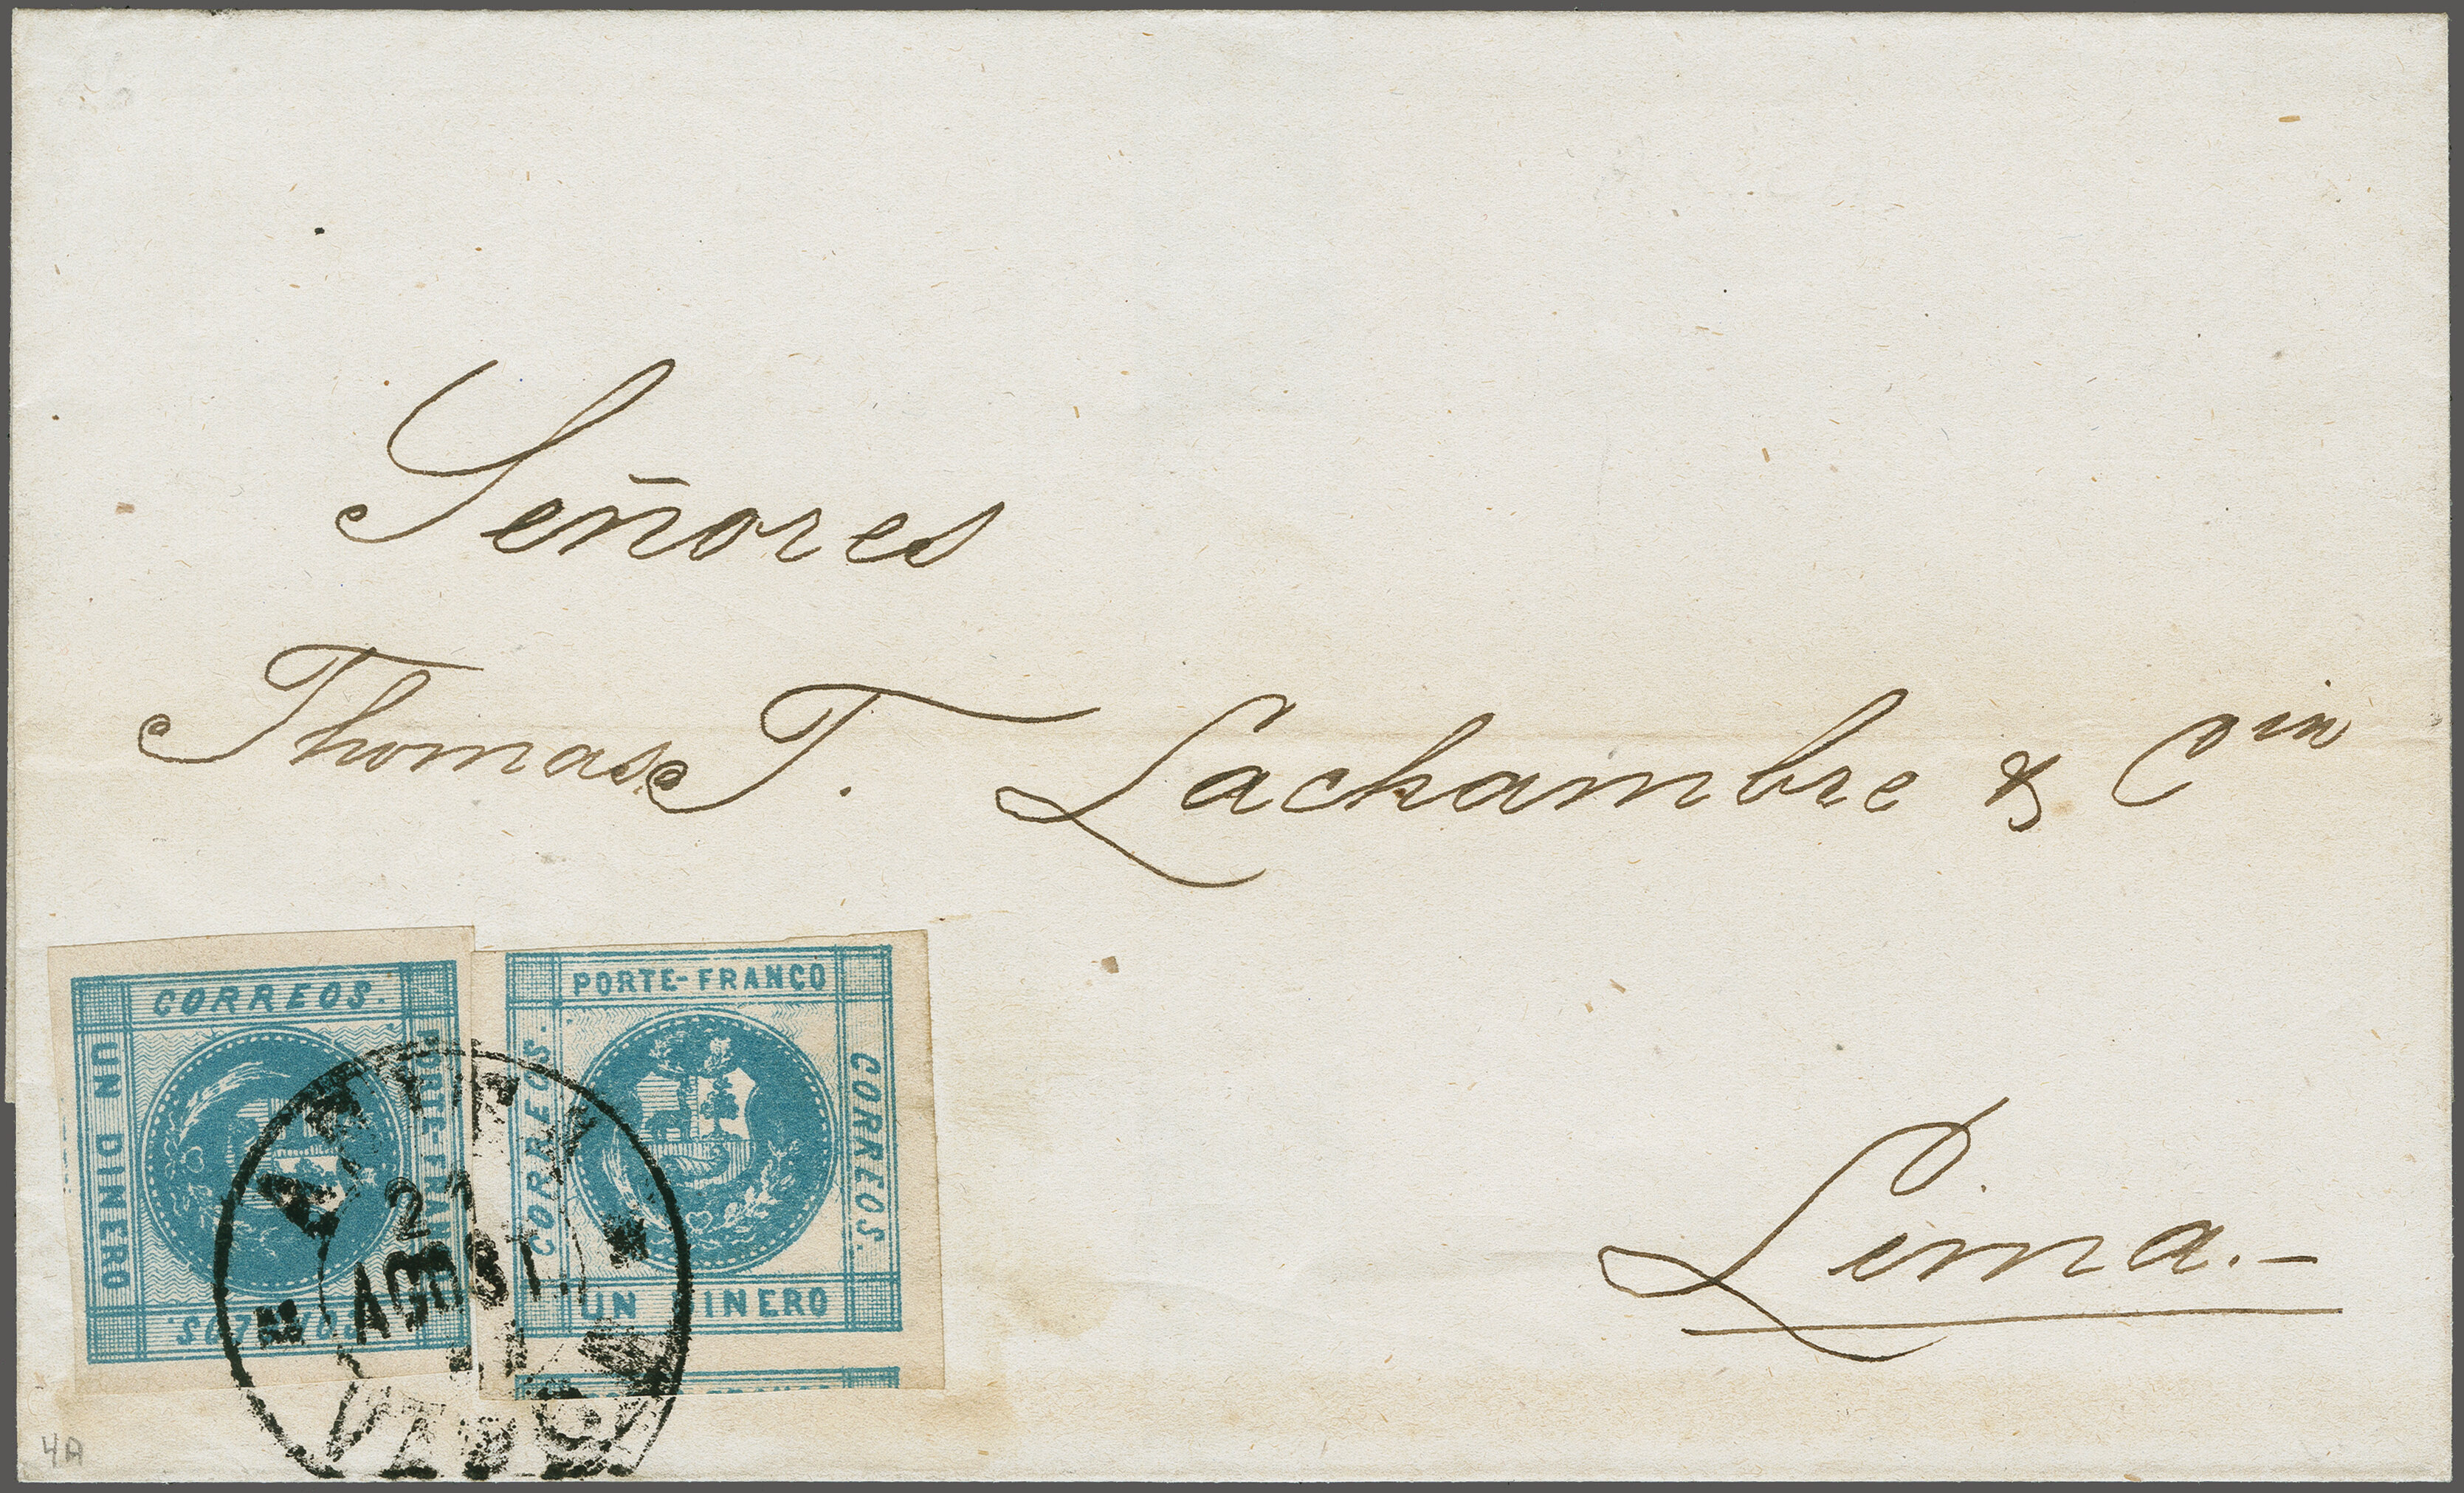 Señores
Thomas T. Lachambre & Cia
Lima.-
CORREOS.
UN DINERO
PORTE-FRANCO
CORREOS.
PORTE-FRANCO
CORREOS.
CORREOS.
UN DINERO
21
AGOST.
4A